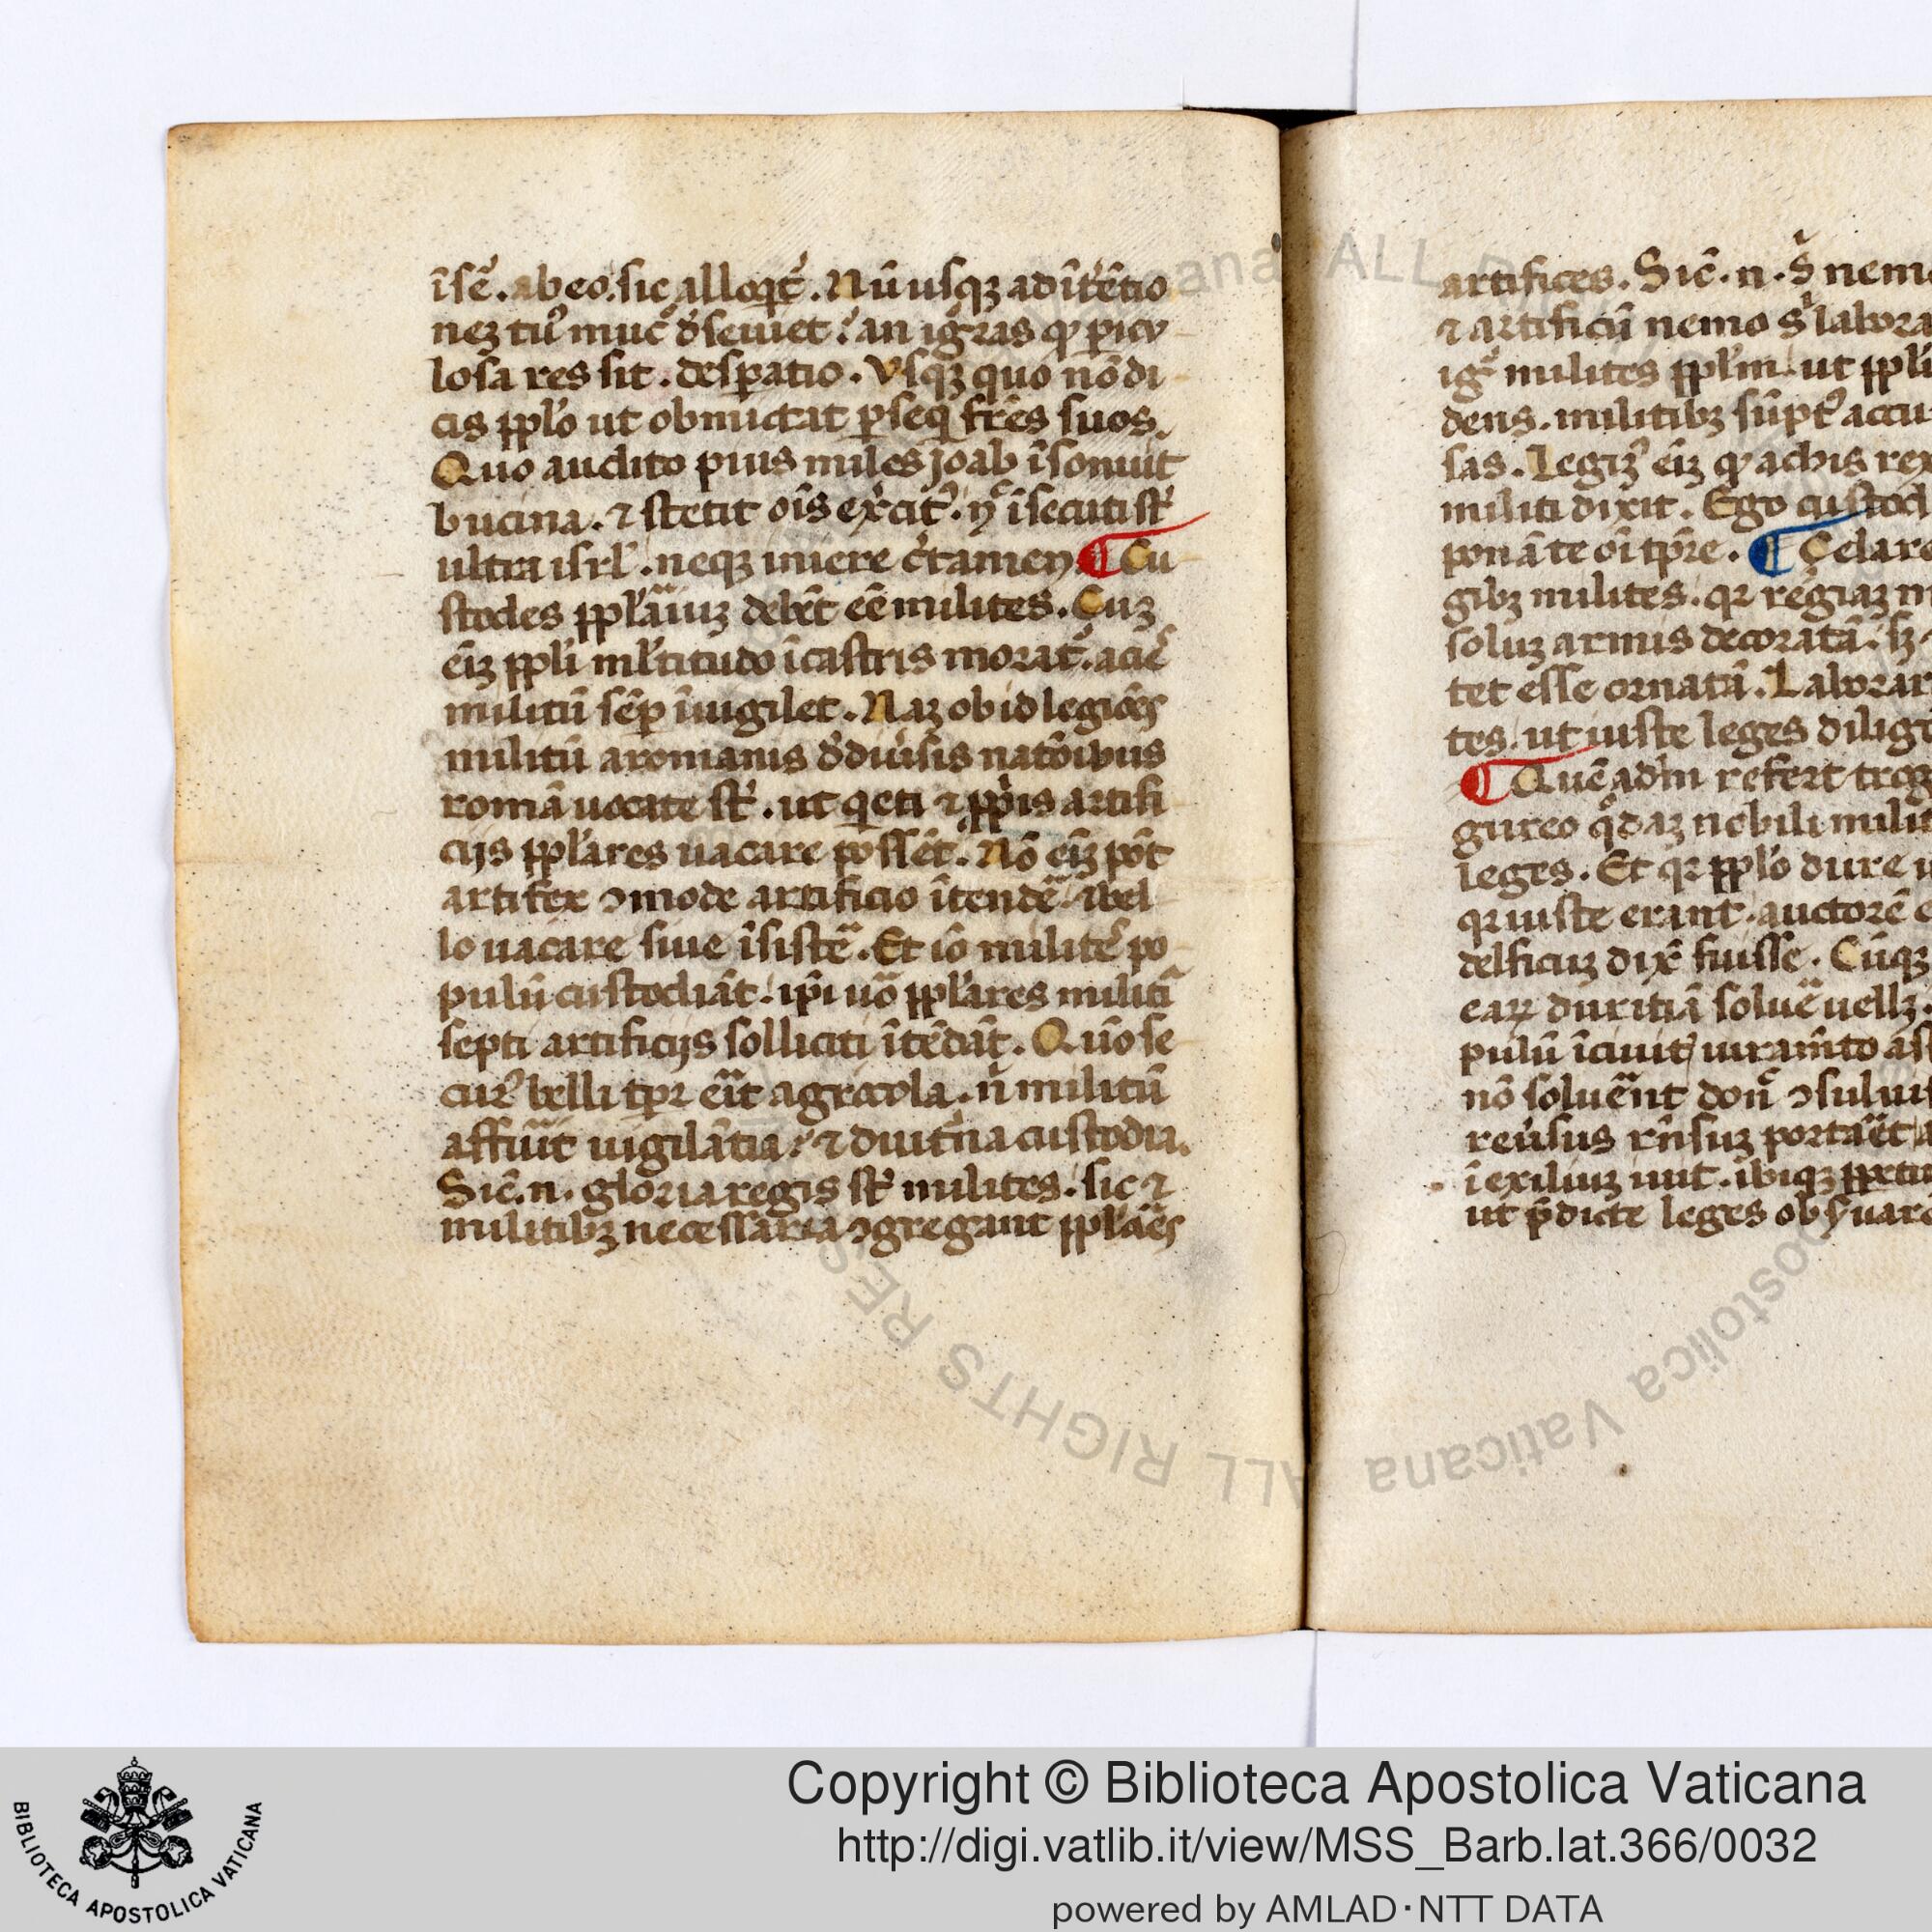 ĩsẽ. ab eo. sic alloqt᷑. Nũ usqꝫ ad ĩt᷑ẽtio
neꝫ tuꝰ muc̃ d᷑seuiet. an ig̃ras ꝙ ꝑicu
losa res sit. desꝑatio. Usqꝫ quo nõ di
cis ppl̃o ut obmictat ꝑseq̃ fr̃es suos.
Quo audito pius miles Joab ĩsonuit
bucina. ⁊ stetit oĩs exc̃itꝰ. n̾ᶜ ĩsecuti st᷑
ultra isrl̃. neqꝫ iniere c᷑tamen ¶ Cu
stodes ppl̃aiuꝫ debẽt eẽ milites. Cuꝫ
eĩꝫ ppl̃i ml̃titudo ĩ castris morat᷑. acie᷑
militũ sẽꝑ ĩuigilet. Naꝫ ob id legiões
militũ a romanis d᷑ diu᷑sis natõibus
romã uocate st᷑. ut q̃eti ⁊ ꝓp̃is artifi
cijs ppl̃ares uacare possẽt. Nõ eĩꝫ põt
artifex ꝯmode artificio ĩtende᷑. ⁊ bel
lo uacare siue ĩsiste᷑. Et iõ milite᷑ po
pulũ custodiãt. ip̃i uõ ppl̃ares militi᷑
septi artificijs solliciti ĩtẽdãt. Quõ se
curꝰ belli tp̃r eĩt agricola. n̾ militũ
affũit uigilãtia. ⁊ diut᷑na custodia.
Sic̃. n. gloria regis st᷑ milites. sic ⁊
militibꝫ necessaria ꝯgregant ppl̃ães
artifices. Sic̃. n. s̾ nemo
⁊ artificũ nemo s̾ labora
ig᷑ milites ppl̃m. ut ppl̃i
dens. militibꝫ sũptꝰ accu
sas. Legiꝫꝰ eĩꝫ ꝙ achis rex
militi dixit. Ego custod
ponã te oĩ tp̃re. ¶ Celare
gibꝫ milites. qꝛ regiaꝫ m
soluꝫ armis decoratã. sꝫ
tet esse ornatã. Laborar
tes. ut iuste leges dilige
¶ Quẽadm̃ refert trog
gureo q̊daꝫ nobili milit
leges. Et qꝛ ppl̃o dure u
qꝛ iuste erant. auctorẽ e
delficuꝫ dix᷑ fuisse. Cũqꝫ
eaꝝ duritiã solue᷑ uellꝫ.
pulũ ĩciuit iuram̃to ast
nõ solue᷑nt don̾ᶜ ꝯsuluis
reu᷑sus rñsuꝫ porta᷑et a
ĩ exiliuꝫ iuit. ibiqꝫ ꝑpetu
ut p̃dicte leges obs̾uare
Copyright © Biblioteca Apostolica Vaticana
http://digi.vatlib.it/view/MSS_Barb.lat.366/0032
powered by AMLAD·NTT DATA
BIBLIOTECA APOSTOLICA VATICANA